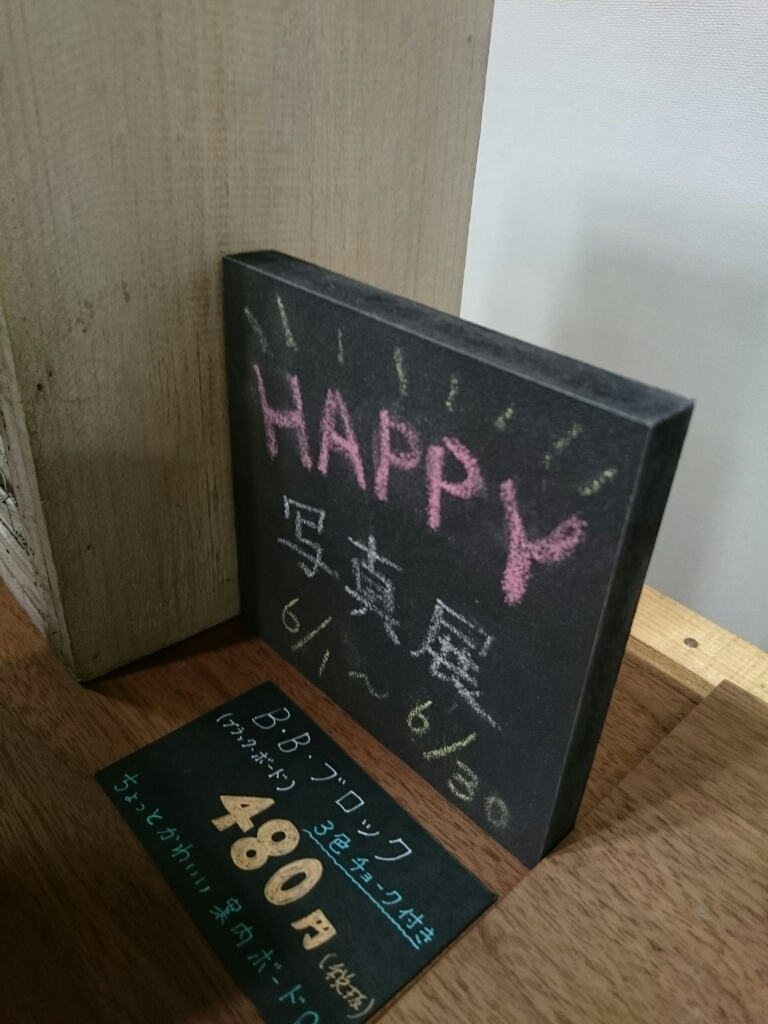 HAPPY
写真展
6/1～6/30
B・B・ブロック
(ブラック・ボード)
3色チョーク付き
480円(税抜)
ちょっとかわいい案内ボード